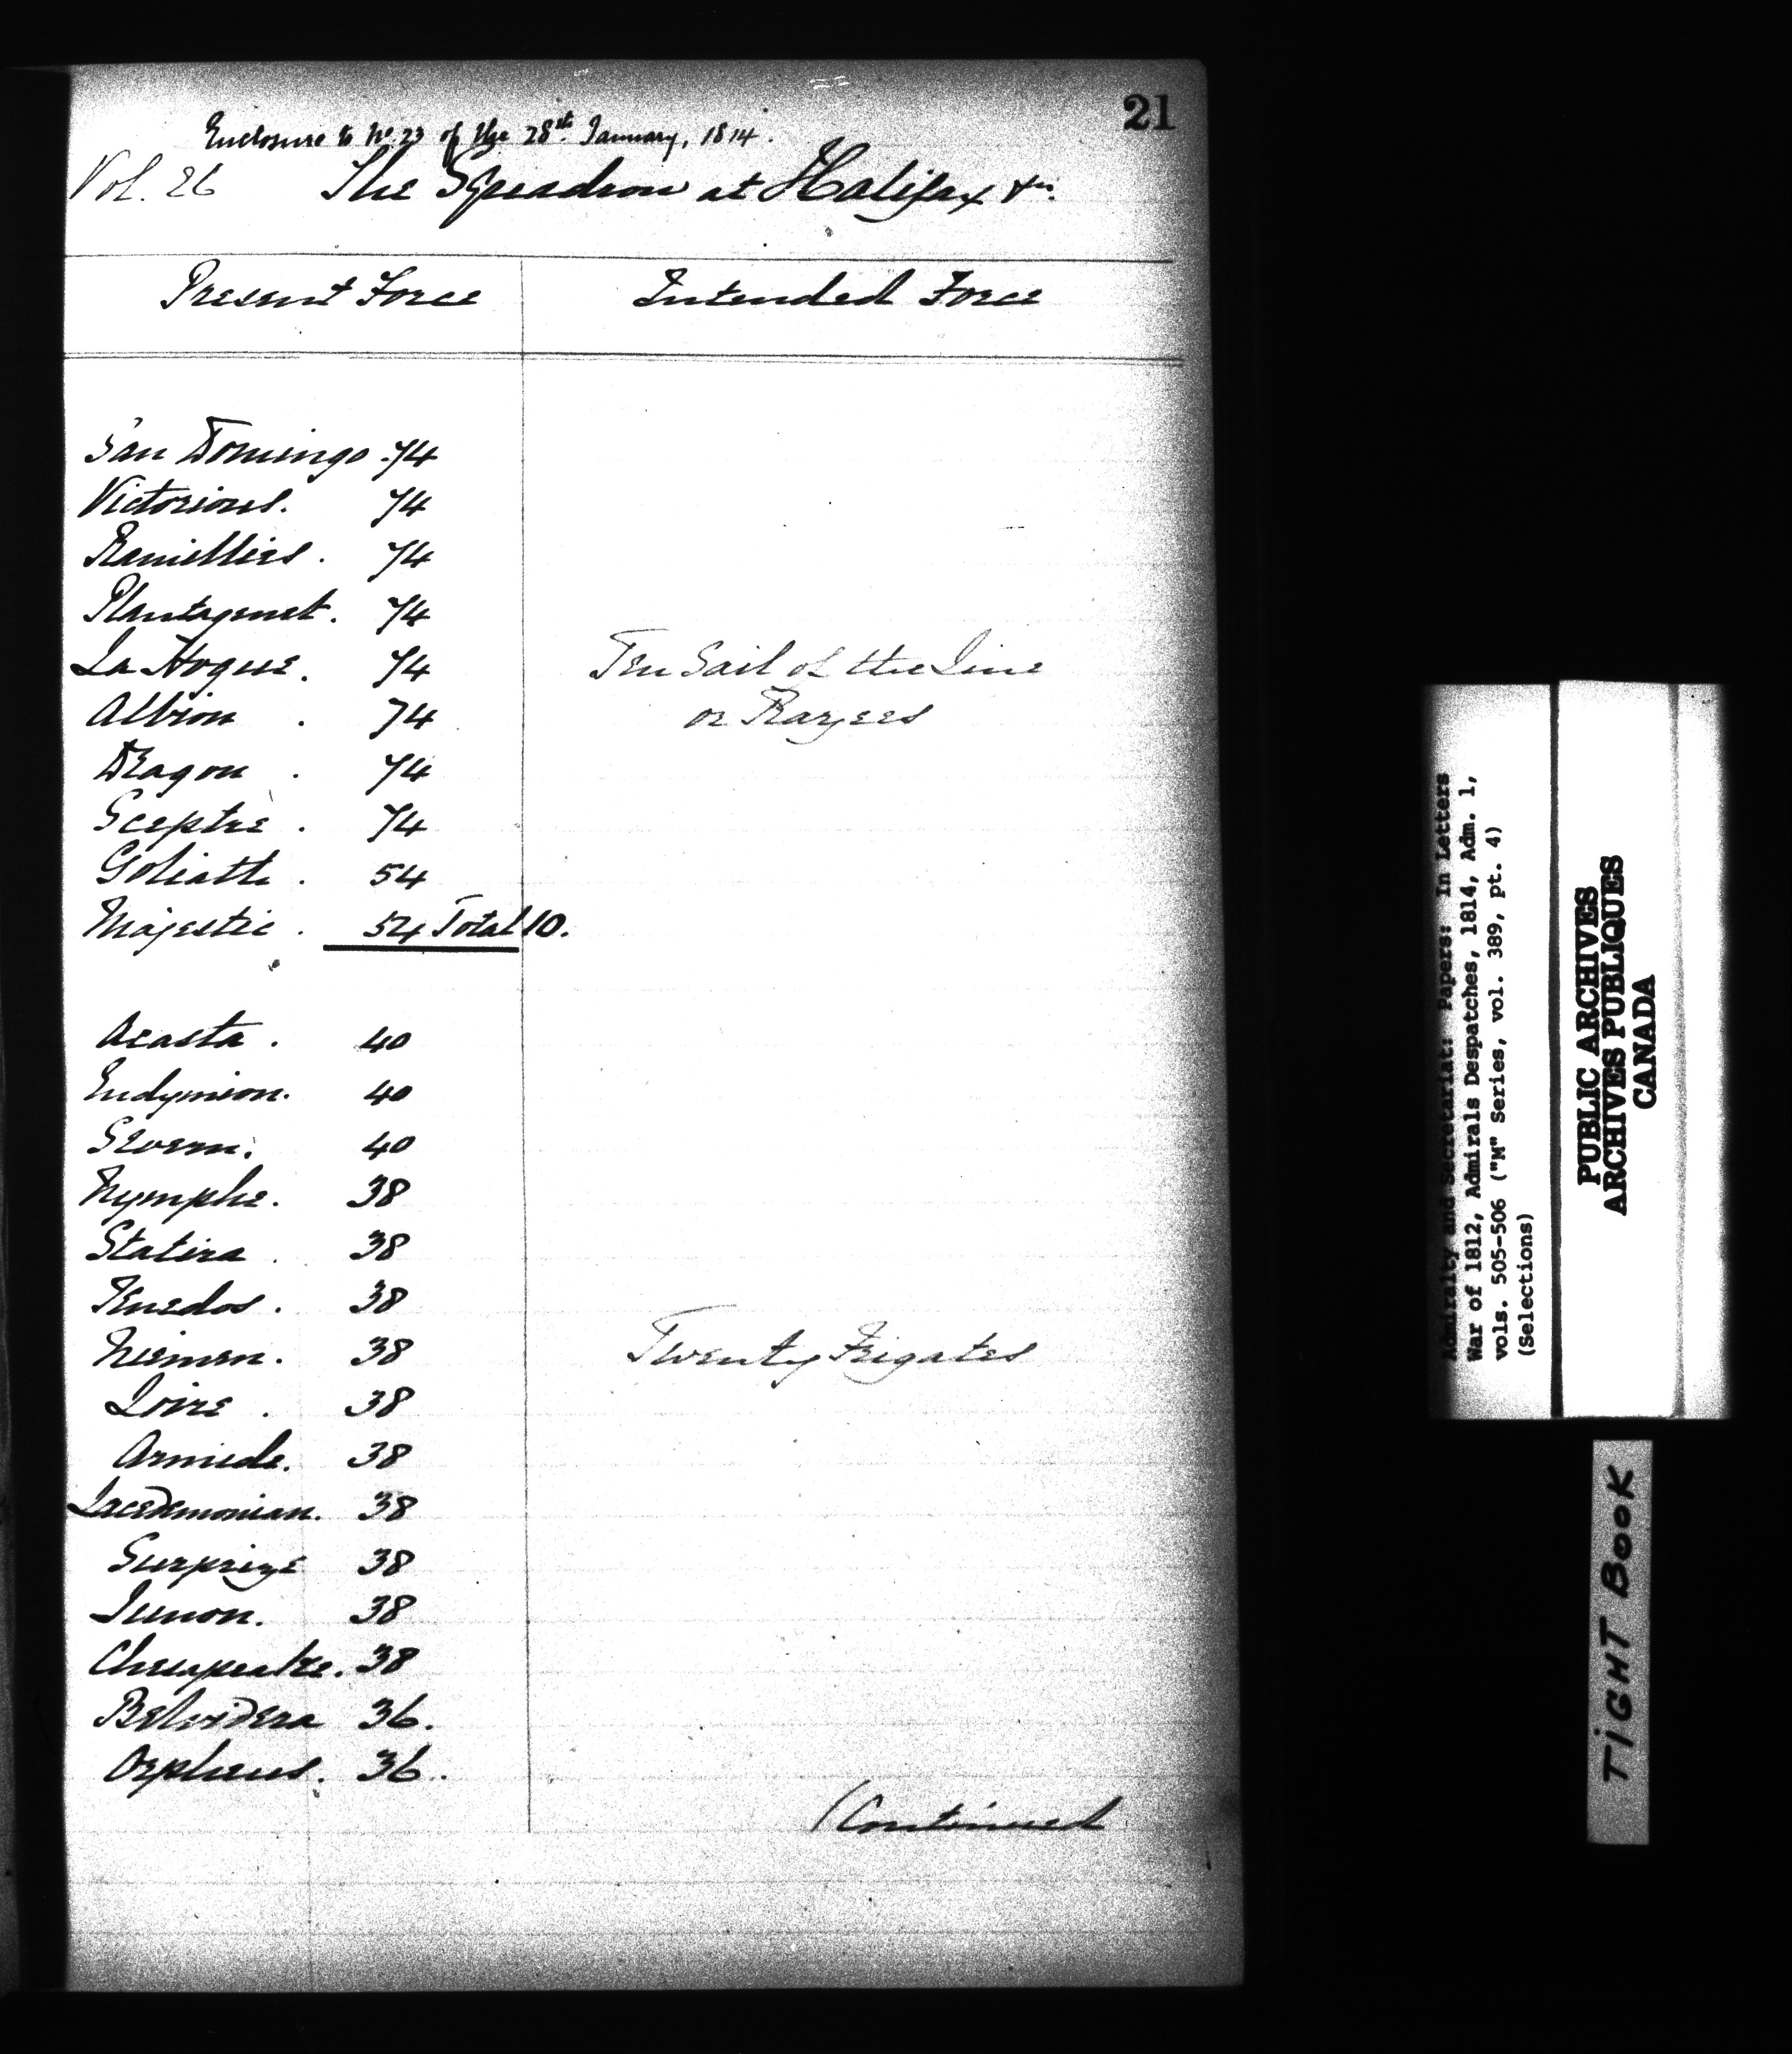 21
Enclosure to No. 23 of the 28th January, 1814.
Vol. 26 The Squadron at Halifax &c.
Present Force Intended Force
San Domingo . 74
Victorious. 74
Ramillies . 74
Plantagenet. 74
La Hogue. 74 Ten Sail of the Line
Albion . 74 or Razees
Dragon . 74
Sceptre . 74
Goliath . 54
Majestic . 54 Total 10.
Acasta . 40
Endymion. 40
Severn. 40
Nymphe. 38
Statira . 38
Tenedos . 38
Niemen. 38 Twenty Frigates
Loire . 38
Armide. 38
Lacedemonian. 38
Surprize 38
Junon. 38
Chesapeake. 38
Belvidera 36.
Orpheus. 36.
(Continued
Admiralty and Secretariat: Papers: In Letters
War of 1812, Admirals Despatches, 1814, Adm. 1,
vols. 505-506 ("M" Series, vol. 389, pt. 4)
(Selections)
PUBLIC ARCHIVES
ARCHIVES PUBLIQUES
CANADA
TIGHT BOOK